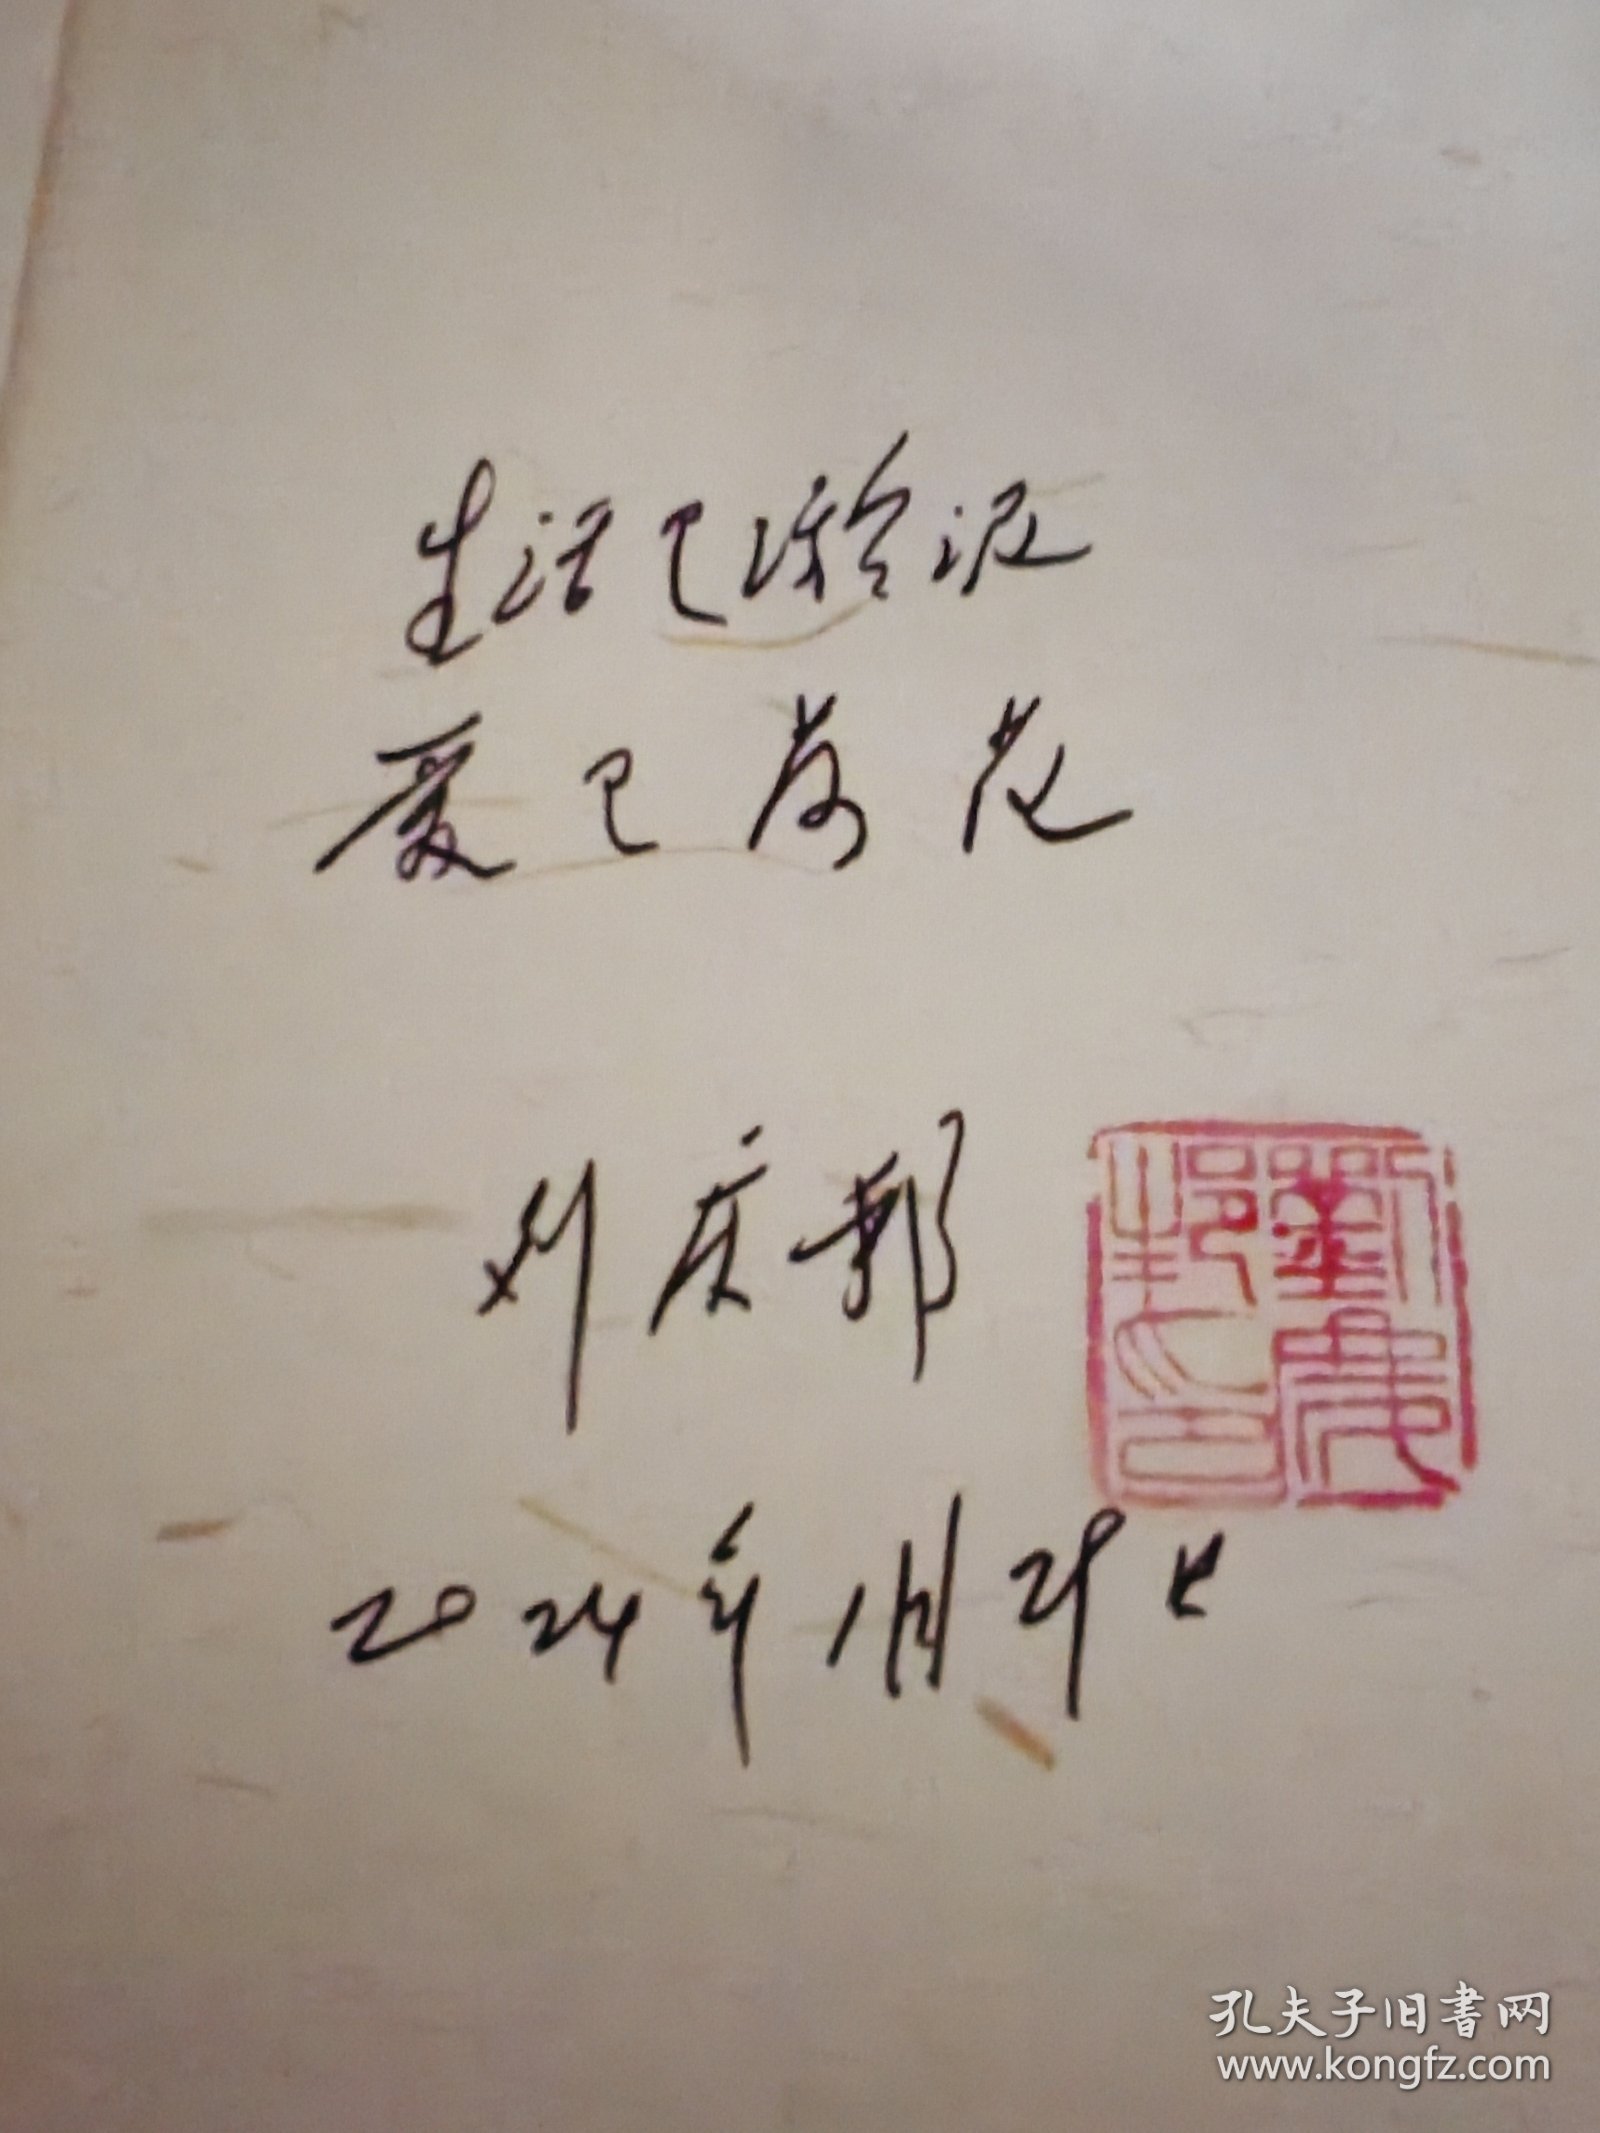 生活是淤泥
爱是荷花
刘庆邦
劉慶邦印
2024年1月29日
孔夫子旧书网
www.kongfz.com